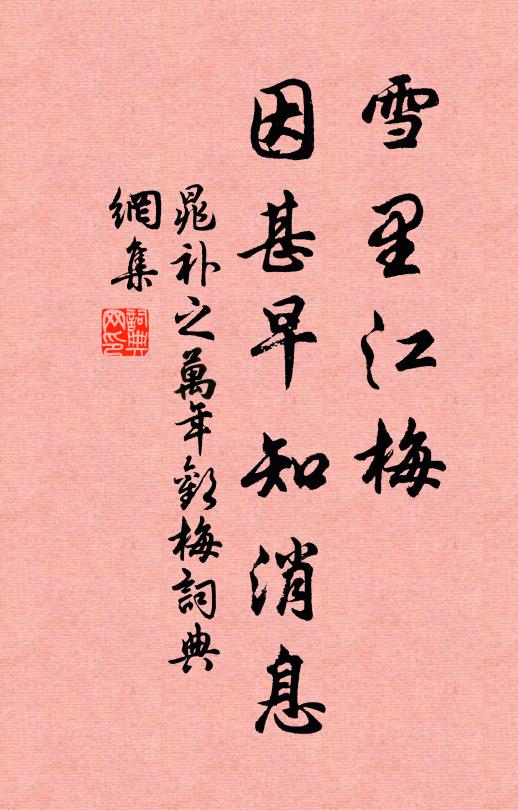 雪里江梅
因甚早知消息
晁补之萬年歡梅詞典
網集
詞典
网印